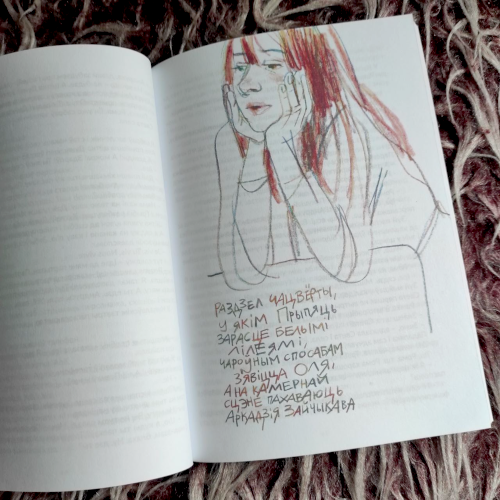 РАЗДЗЕЛ ЧАЦВЁРТЫ,
У ЯКІМ ПРЫПЯЦЬ
ЗАРАСЦЕ БЕЛЫМІ
ЛІЛЕЯМІ,
ЧАРОЎНЫМ СПОСАБАМ
З'ЯВІЦЦА ОЛЯ,
А НА КАМЕРНАЙ
СЦЭНЕ ПАХАВАЮЦЬ
АРКАДЗЯ ЗАЙЧЫКАВА